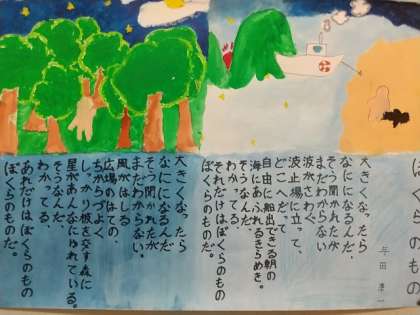 ぼくらのもの
与田 準一
大きくなったら
なにになるんだ、
そう聞かれたが
まだわからない。
波がさわぐ、
波止場に立って、
どこへだって
自由に船出できる朝の
海にあふれるきらめき。
そうなんだ、
わかってる、
それだけはぼくらのもの
ぼくらのものだ。
大きくなったら
なにになるんだ、
そう聞かれたが
まだわからない。
風がはしる、
広場のはての、
ちからづよく、
しっかり枝を交す森に
星があんなにゆれている。
そうなんだ、
わかってる、
あれだけはぼくらのもの
ぼくらのものだ。